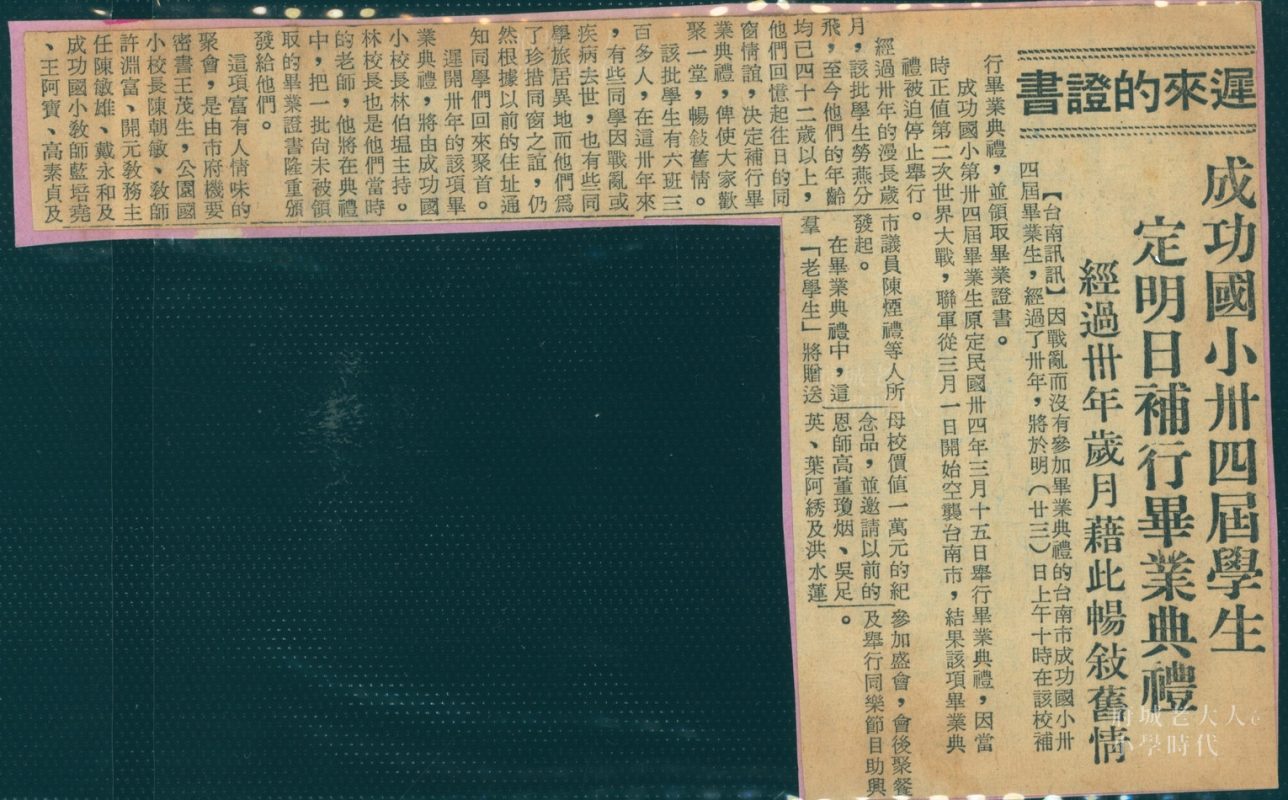 遲來的證書
成功國小卅四屆學生
定明日補行畢業典禮
經過卅年歲月藉此暢敍舊情
【台南訊訊】因戰亂而沒有參加畢業典禮的台南市成功國小卅
四屆畢業生，經過了卅年，將於明（廿三）日上午十時在該校補
行畢業典禮，並領取畢業證書。
成功國小第卅四屆畢業生原定民國卅四年三月十五日舉行畢業典禮，因當
時正值第二次世界大戰，聯軍從三月一日開始空襲台南市，結果該項畢業典
禮被迫停止舉行。
經過卅年的漫長歲
月，該批學生勞燕分
飛，至今他們的年齡
均已四十二歲以上，
他們回憶起往日的同
窗情誼，決定補行畢
業典禮，俾使大家歡
聚一堂，暢敍舊情。
該批學生有六班三
百多人，在這卅年來
，有些同學因戰亂或
疾病去世，也有些同
學旅居異地而他們爲
了珍措同窗之誼，仍
然根據以前的住址通
知同學們回來聚首。
遲開卅年的該項畢
業典禮，將由成功國
小校長林伯塭主持。
林校長也是他們當時
的老師，他將在典禮
中，把一批尚未被領
取的畢業證書隆重頒
發給他們。
這項富有人情味的
聚會，是由市府機要
密書王茂生，公園國
小校長陳朝敏、敎師
許淵富、開元敎務主
任陳敏雄、戴永和及
成功國小敎師藍培堯
、王阿寶、高素貞及
市議員陳煙禮等人所
發起。
在畢業典禮中，這
羣「老學生」將贈送
母校價值一萬元的紀
念品，並邀請以前的
恩師高董瓊烟、吳足
英、葉阿綉及洪水蓮
參加盛會，會後聚餐
及舉行同樂節目助興
。
府城老大人ê
小學時代